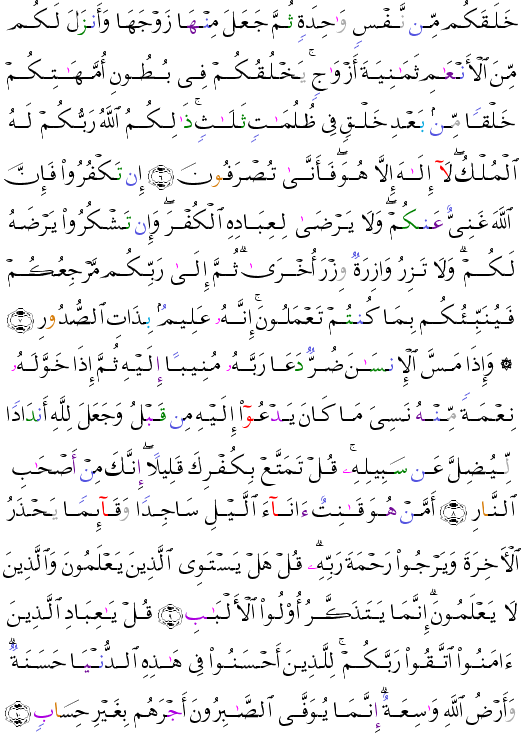 خَلَقَكُم مِّن نَّفْسٍ وَٰحِدَةٍ ثُمَّ جَعَلَ مِنْهَا زَوْجَهَا وَأَنزَلَ لَكُم
مِّنَ ٱلْأَنْعَٰمِ ثَمَٰنِيَةَ أَزْوَٰجٍ ۚ يَخْلُقُكُمْ فِى بُطُونِ أُمَّهَٰتِكُمْ
خَلْقًا مِّنۢ بَعْدِ خَلْقٍ فِى ظُلُمَٰتٍ ثَلَٰثٍ ۚ ذَٰلِكُمُ ٱللَّهُ رَبُّكُمْ لَهُ
ٱلْمُلْكُ ۖ لَآ إِلَٰهَ إِلَّا هُوَ ۖ فَأَنَّىٰ تُصْرَفُونَ ۝٦ إِن تَكْفُرُوا۟ فَإِنَّ
ٱللَّهَ غَنِىٌّ عَنكُمْ ۖ وَلَا يَرْضَىٰ لِعِبَادِهِ ٱلْكُفْرَ ۖ وَإِن تَشْكُرُوا۟ يَرْضَهُ
لَكُمْ ۗ وَلَا تَزِرُ وَازِرَةٌ وِزْرَ أُخْرَىٰ ۗ ثُمَّ إِلَىٰ رَبِّكُم مَّرْجِعُكُمْ
فَيُنَبِّئُكُم بِمَا كُنتُمْ تَعْمَلُونَ ۚ إِنَّهُۥ عَلِيمٌۢ بِذَاتِ ٱلصُّدُورِ ۝٧
۞ وَإِذَا مَسَّ ٱلْإِنسَٰنَ ضُرٌّ دَعَا رَبَّهُۥ مُنِيبًا إِلَيْهِ ثُمَّ إِذَا خَوَّلَهُۥ
نِعْمَةً مِّنْهُ نَسِىَ مَا كَانَ يَدْعُوٓا۟ إِلَيْهِ مِن قَبْلُ وَجَعَلَ لِلَّهِ أَندَادًا
لِّيُضِلَّ عَن سَبِيلِهِۦ ۚ قُلْ تَمَتَّعْ بِكُفْرِكَ قَلِيلًا ۖ إِنَّكَ مِنْ أَصْحَٰبِ
ٱلنَّارِ ۝٨ أَمَّنْ هُوَ قَٰنِتٌ ءَانَآءَ ٱلَّيْلِ سَاجِدًا وَقَآئِمًا يَحْذَرُ
ٱلْءَاخِرَةَ وَيَرْجُوا۟ رَحْمَةَ رَبِّهِۦ ۗ قُلْ هَلْ يَسْتَوِى ٱلَّذِينَ يَعْلَمُونَ وَٱلَّذِينَ
لَا يَعْلَمُونَ ۗ إِنَّمَا يَتَذَكَّرُ أُو۟لُوا۟ ٱلْأَلْبَٰبِ ۝٩ قُلْ يَٰعِبَادِ ٱلَّذِينَ
ءَامَنُوا۟ ٱتَّقُوا۟ رَبَّكُمْ ۚ لِلَّذِينَ أَحْسَنُوا۟ فِى هَٰذِهِ ٱلدُّنْيَا حَسَنَةٌ ۗ
وَأَرْضُ ٱللَّهِ وَٰسِعَةٌ ۗ إِنَّمَا يُوَفَّى ٱلصَّٰبِرُونَ أَجْرَهُم بِغَيْرِ حِسَابٍ ۝١٠